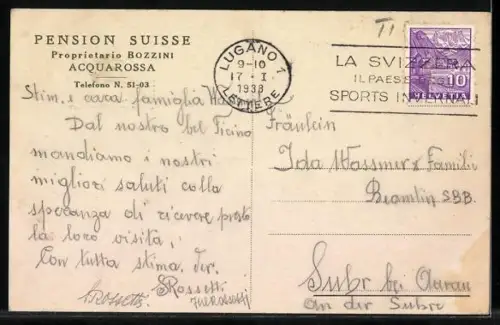 PENSION SUISSE
Proprietario BOZZINI
ACQUAROSSA
Telefono N. 51-03
LUGANO 1
9-10
17-I
1938
LETTERE
TI
LA SVIZZERA
IL PAESE DEGLI
SPORTS INVERNALI
10
HELVETIA
Stim. e cara famiglia
Dal nostro bel Ticino
mandiamo i nostri
migliori saluti colla
speranza di ricevere presto
la loro visita,
Con tutta stima.
Rossetti
Rossetti
Fräulein
Ida Wassmer & Familie
Beamtin SBB.
Suhr bei Aarau
an der Suhre